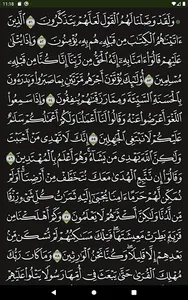 11:18
۞ وَلَقَدْ وَصَّلْنَا لَهُمُ الْقَوْلَ لَعَلَّهُمْ يَتَذَكَّرُونَ ٥١ الَّذِينَ
آتَيْنَاهُمُ الْكِتَابَ مِن قَبْلِهِ هُم بِهِ يُؤْمِنُونَ ٥٢ وَإِذَا يُتْلَى
عَلَيْهِمْ قَالُوا آمَنَّا بِهِ إِنَّهُ الْحَقُّ مِن رَّبِّنَا إِنَّا كُنَّا مِن قَبْلِهِ
مُسْلِمِينَ ٥٣ أُولَئِكَ يُؤْتَوْنَ أَجْرَهُم مَّرَّتَيْنِ بِمَا صَبَرُوا وَيَدْرَءُونَ
بِالْحَسَنَةِ السَّيِّئَةَ وَمِمَّا رَزَقْنَاهُمْ يُنفِقُونَ ٥٤ وَإِذَا سَمِعُوا
اللَّغْوَ أَعْرَضُوا عَنْهُ وَقَالُوا لَنَا أَعْمَالُنَا وَلَكُمْ أَعْمَالُكُمْ سَلَامٌ
عَلَيْكُمْ لَا نَبْتَغِي الْجَاهِلِينَ ٥٥ إِنَّكَ لَا تَهْدِي مَنْ أَحْبَبْتَ
وَلَكِنَّ اللَّهَ يَهْدِي مَن يَشَاءُ وَهُوَ أَعْلَمُ بِالْمُهْتَدِينَ ٥٦
وَقَالُوا إِن نَّتَّبِعِ الْهُدَى مَعَكَ نُتَخَطَّفْ مِنْ أَرْضِنَا أَوَلَمْ
نُمَكِّن لَّهُمْ حَرَمًا آمِنًا يُجْبَى إِلَيْهِ ثَمَرَاتُ كُلِّ شَيْءٍ رِّزْقًا
مِّن لَّدُنَّا وَلَكِنَّ أَكْثَرَهُمْ لَا يَعْلَمُونَ ٥٧ وَكَمْ أَهْلَكْنَا
مِن قَرْيَةٍ بَطِرَتْ مَعِيشَتَهَا فَتِلْكَ مَسَاكِنُهُمْ لَمْ تُسْكَن
مِّن بَعْدِهِمْ إِلَّا قَلِيلًا وَكُنَّا نَحْنُ الْوَارِثِينَ ٥٨ وَمَا كَانَ رَبُّكَ
مُهْلِكَ الْقُرَى حَتَّى يَبْعَثَ فِي أُمِّهَا رَسُولًا يَتْلُو عَلَيْهِمْ